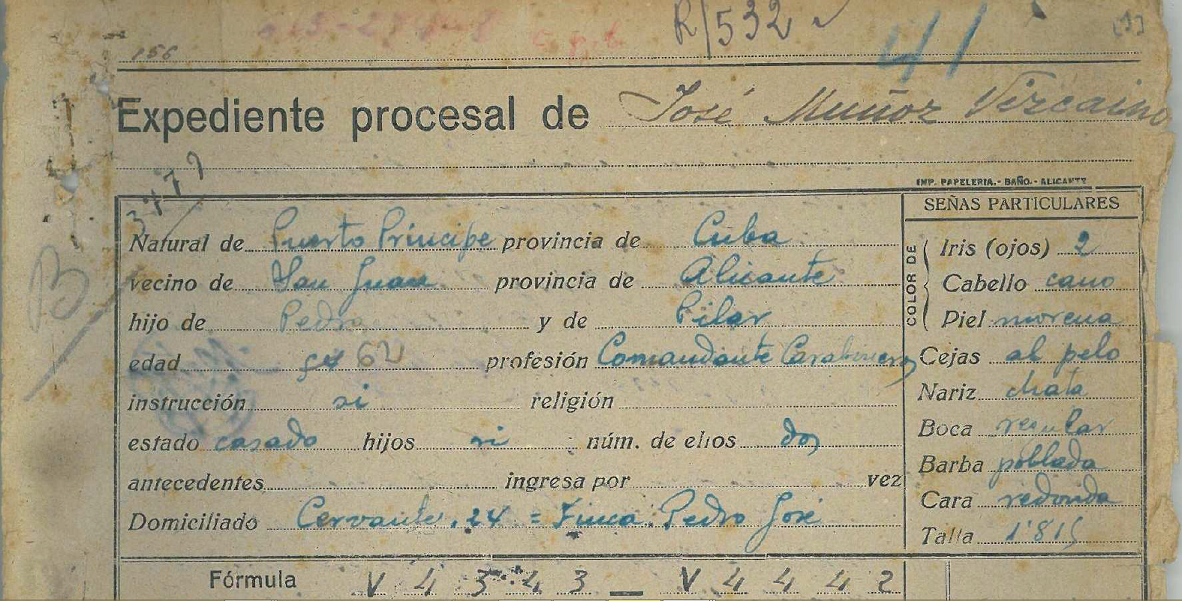 156 R/532 41 (1)
Expediente procesal de José Muñoz Vizcaino
IMP. PAPELERIA.- BAÑO.- ALICANTE
3779
Natural de Puerto Principe provincia de Cuba
vecino de San Juan provincia de Alicante
hijo de Pedro y de Pilar
edad 62 profesión Comandante Carabineros
instrucción si religión
estado casado hijos si núm. de ellos dos
antecedentes ingresa por vez
Domiciliado Cervante, 24 = Finca Pedro José
SEÑAS PARTICULARES
COLOR DE
Iris (ojos) 2
Cabello cano
Piel morena
Cejas al pelo
Nariz chata
Boca regular
Barba poblada
Cara redonda
Talla 1'815
B
Fórmula V 4 3 4 3 — V 4 4 4 2